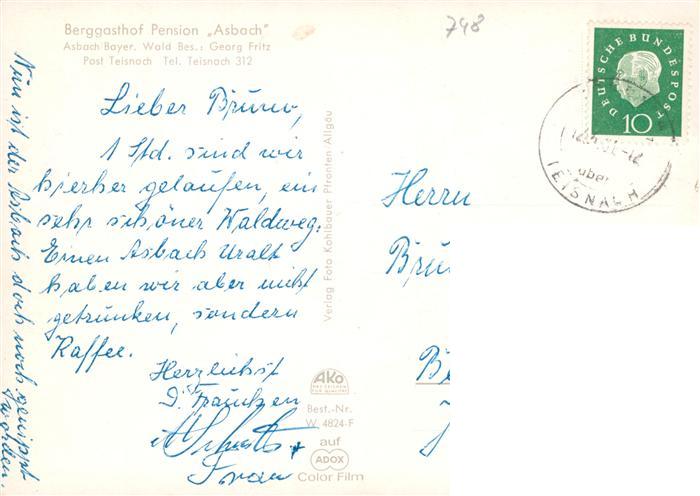 Berggasthof Pension „Asbach"
Asbach Bayer. Wald Bes.: Georg Fritz
Post Teisnach Tel. Teisnach 312
748
Lieber Bruno,
1 Std. sind wir
hierher gelaufen, ein
sehr schöner Waldweg.
Einen Asbach Uralt
haben wir aber nicht
getrunken, sondern
Kaffee.
Herzlichst
Frau
Nun ist der Asbach doch noch genippt
worden.
Verlag Foto Kohlbauer Pfronten Allgäu
AKO
Best.-Nr.
W 4824-F
auf
ADOX
Color Film
DEUTSCHE BUNDESPOST
10
über
TEISNACH
Herrn
Bru